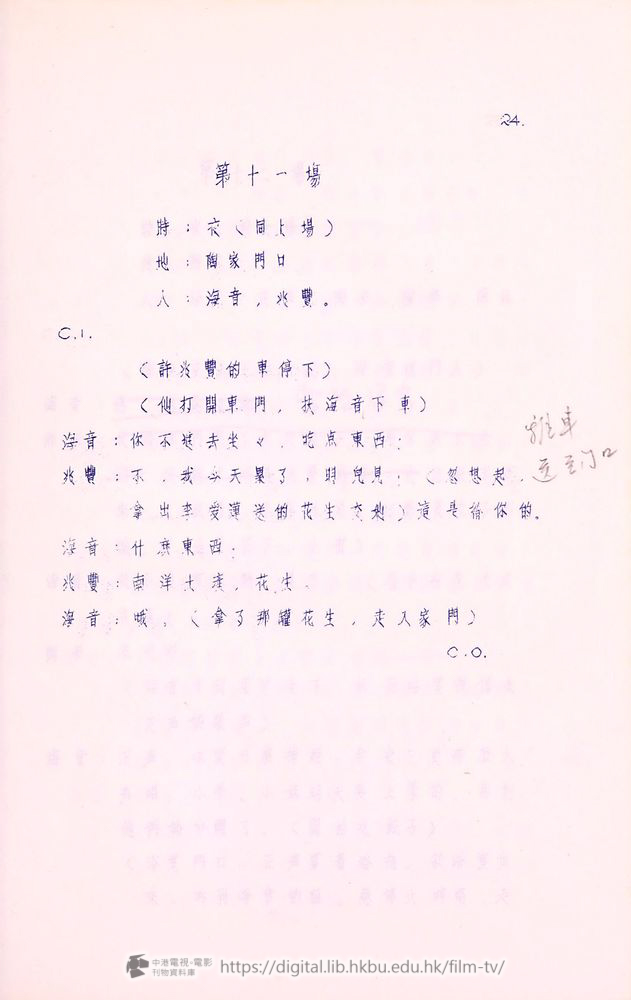 24.
第十一場
時：夜（同上場）
地：陶家門口
人：海音，兆豐。
C.I.
（許兆豐的車停下）
（他打開車門，扶海音下車）
海音：你不進去坐坐，吃点東西？
兆豐：不，我今天累了，明兒見！（忽想起，
拿出李愛蓮送的花生交她）這是給你的。
推車
送至门口
海音：什麽東西？
兆豐：南洋土產，花生。
海音：哦，（拿了那罐花生，走入家門）
C.O.
中港電視・電影
刊物資料庫
https://digital.lib.hkbu.edu.hk/film-tv/